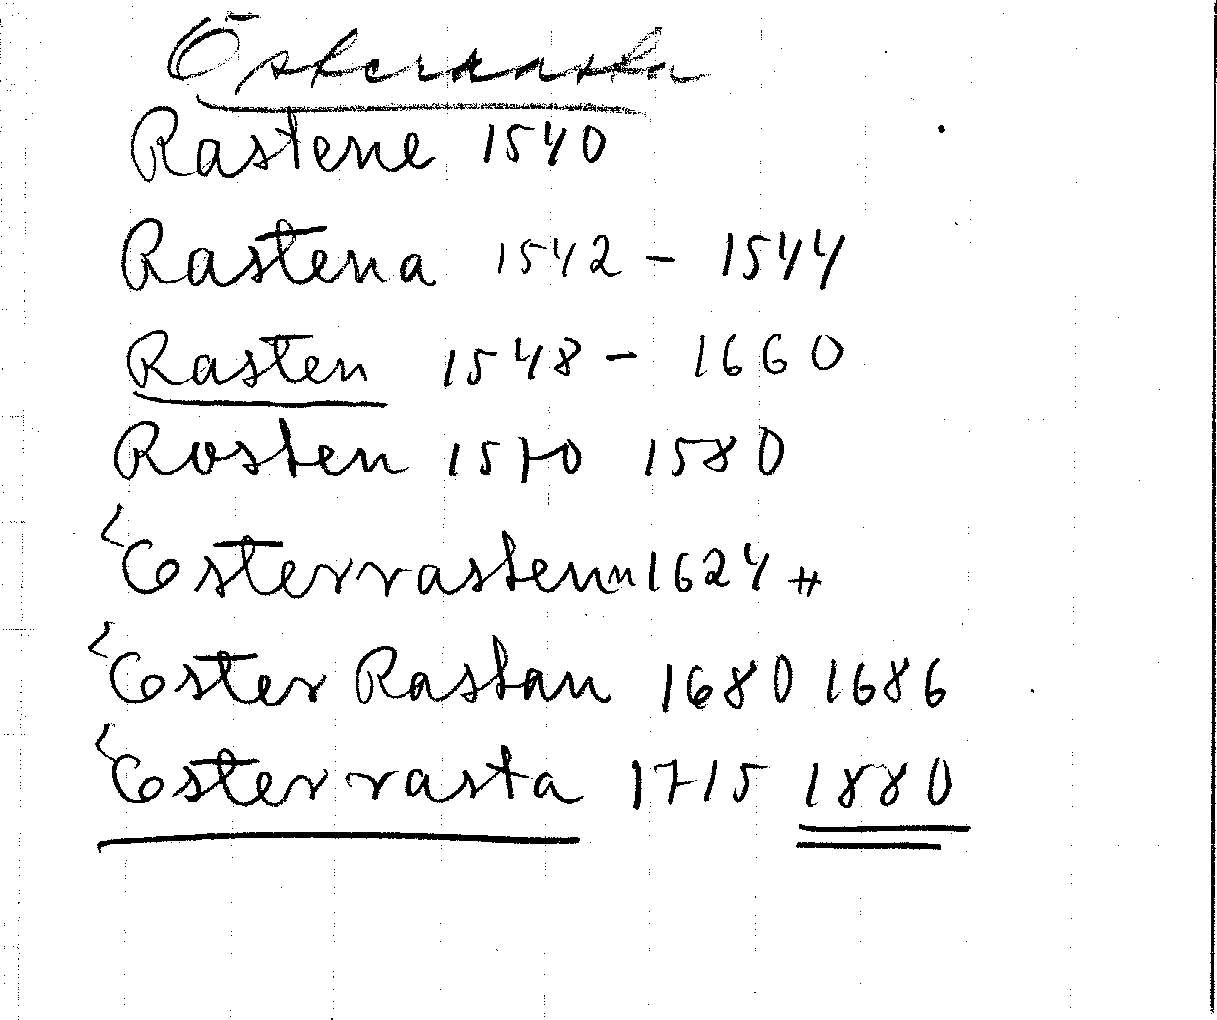 Österrasta
Rastene 1540
Rastena 1542 - 1544
Rasten 1548 - 1660
Rosten 1570 1580
Österrastenm 1624 #
Öster Rastan 1680 1686
Öster rasta 1715 1880